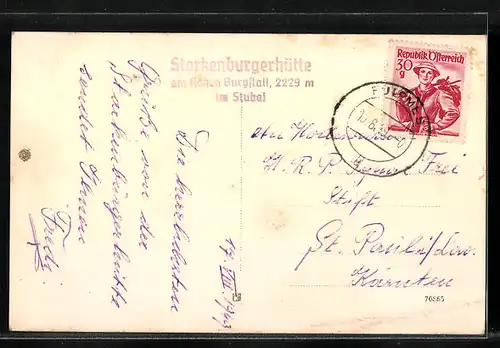 Starkenburgerhütte
am Hohen Burgstall, 2229 m
im Stubai
Republik Österreich
30
g
FULPMES
Die herzlichsten
Grüße von der
Starkenburgerhütte
sendet Ihnen
Fredi
17. VIII. 1949
H. R. P.
Frei
Stift
St. Paul i/Lav.
Kärnten
70865